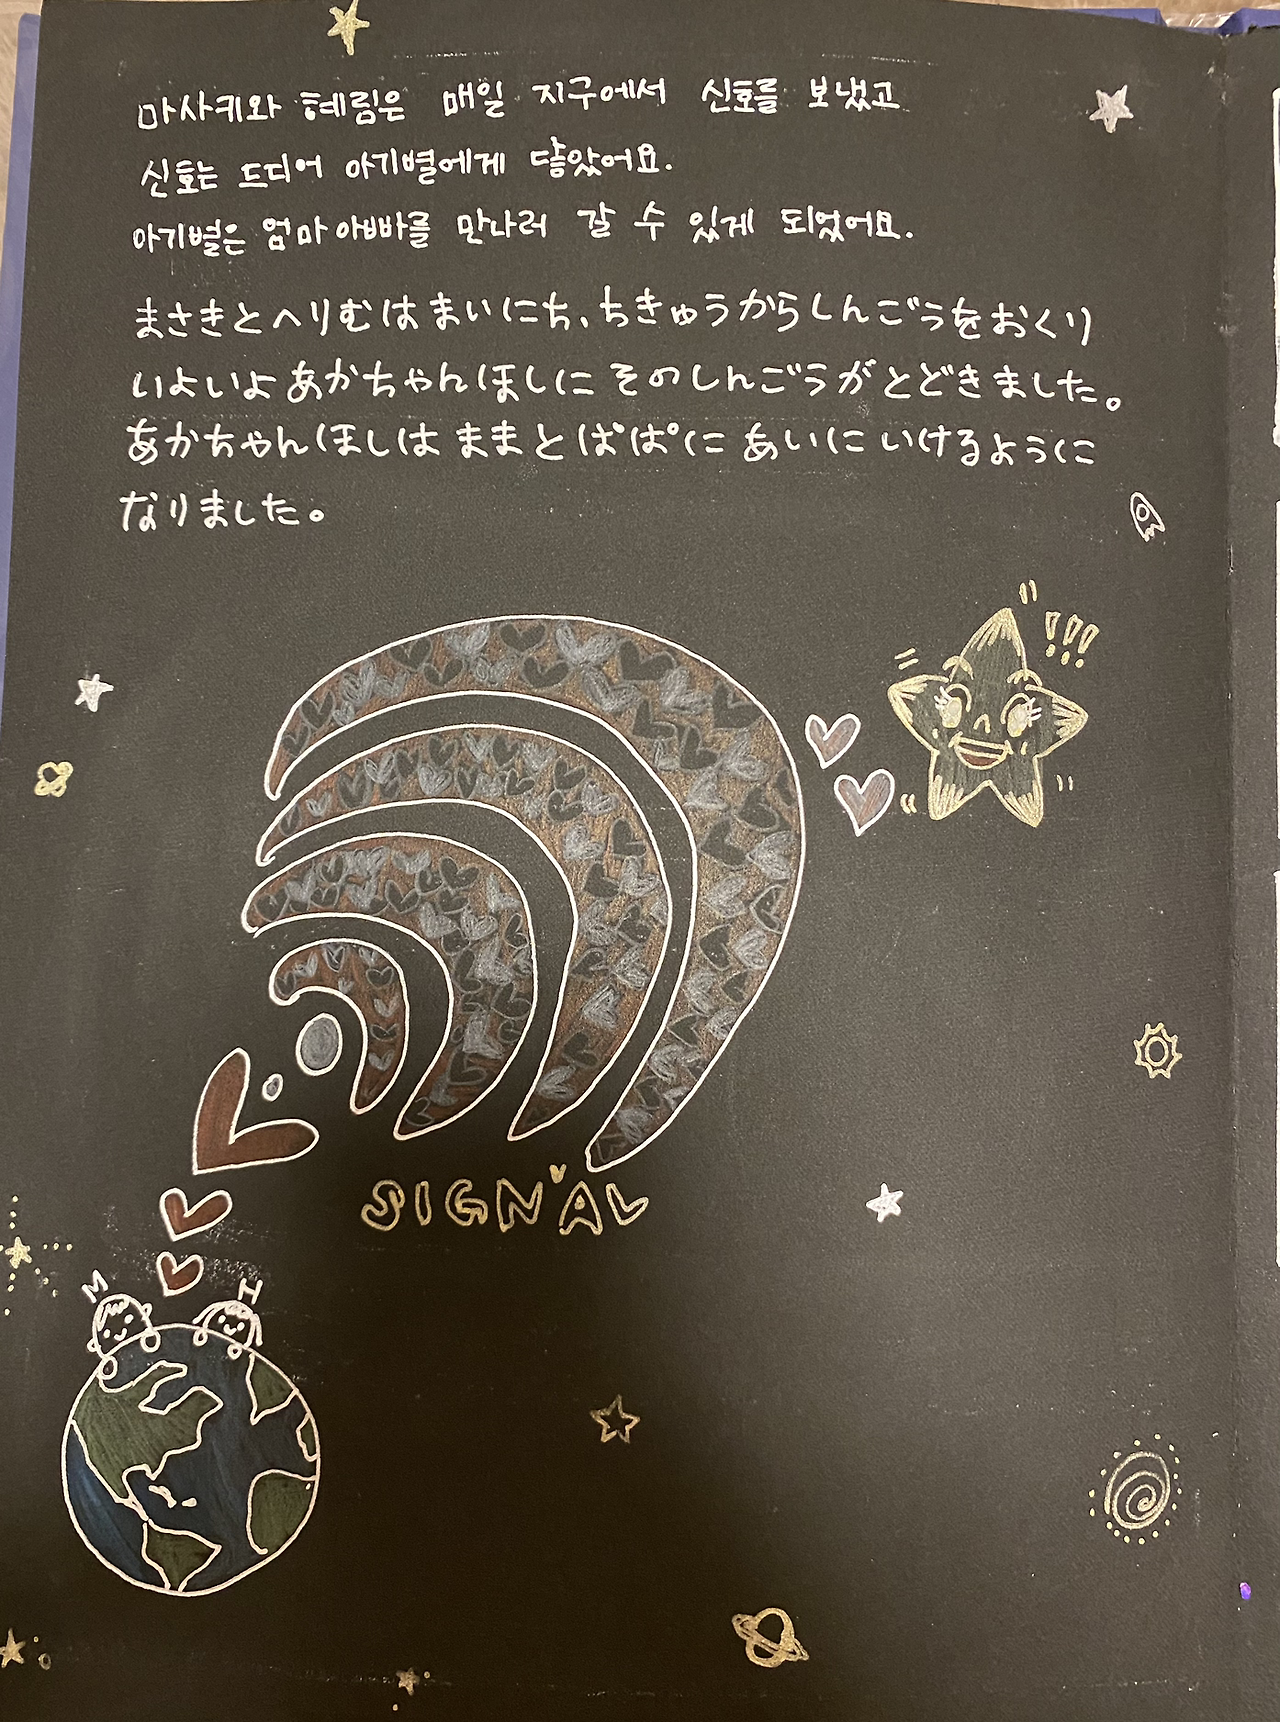 마사키와 혜림은 매일 지구에서 신호를 보냈고
신호는 드디어 아기별에게 닿았어요.
아기별은 엄마아빠를 만나러 갈 수 있게 되었어요.
まさきとへりむはまいにち、ちきゅうからしんごうをおくり
いよいよあかちゃんほしにそのしんごうがとどきました。
あかちゃんほしはままとぱぱにあいにいけるように
なりました。
!!!
SIGNAL
M H